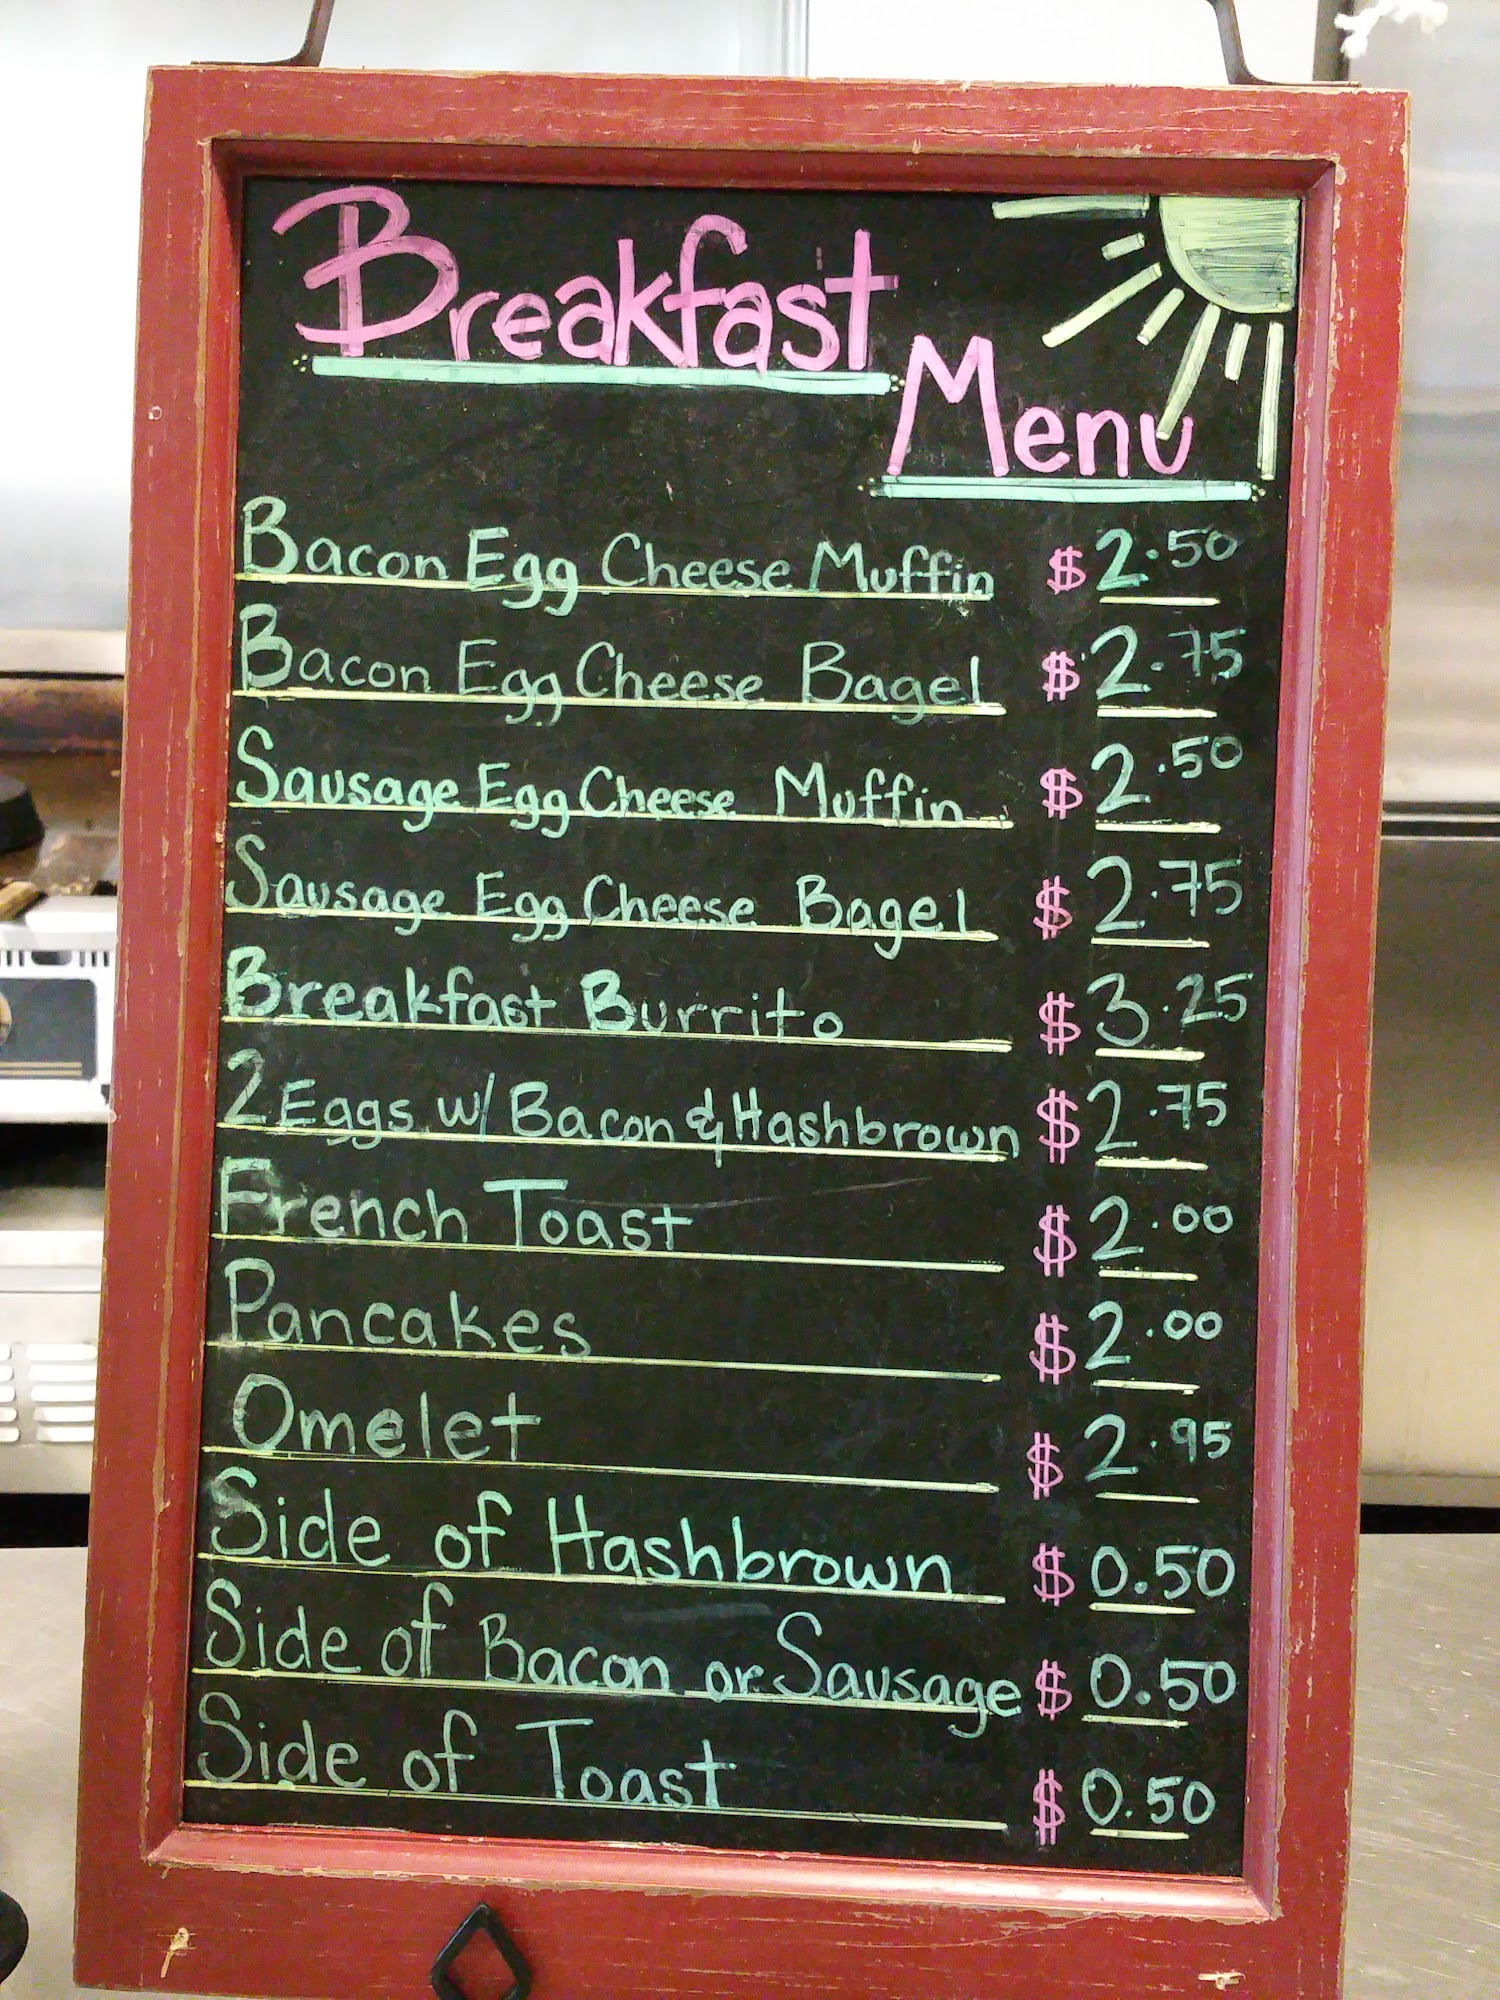 Breakfast
Menu
Bacon Egg Cheese Muffin $2.50
Bacon Egg Cheese Bagel $2.75
Sausage Egg Cheese Muffin $2.50
Sausage Egg Cheese Bagel $2.75
Breakfast Burrito $3.25
2 Eggs w/ Bacon & Hashbrown $2.75
French Toast $2.00
Pancakes $2.00
Omelet $2.95
Side of Hashbrown $0.50
Side of Bacon or Sausage $0.50
Side of Toast $0.50